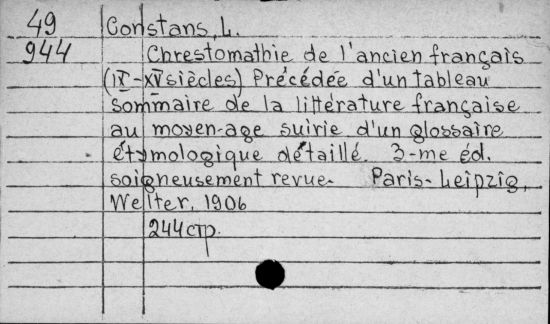 49 Constans, L.
944 Chrestomathie de l'ancien français
(IX-XV siècles) Précédée d'un tableau
sommaire de la littérature française
au moyen-age suirie d'un glossaire
étymologique détaillé. 3-me éd.
soigneusement revue. Paris-Leipzig,
Welter, 1906
244 стр.